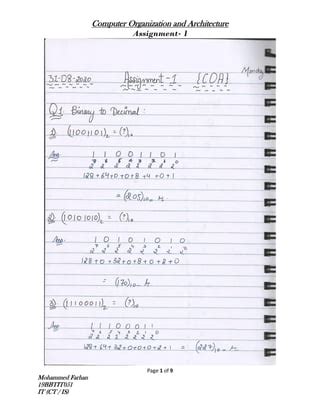 Computer Organization and Architecture
Assignment- 1
Monday
31-08-2020 Assignment-1 {COA}
Q1. Binary to Decimal :
1) (11001101)₂ = (?)₁₀
Ans 1 1 0 0 1 1 0 1
2⁷ 2⁶ 2⁵ 2⁴ 2³ 2² 2¹ 2⁰
128+64+0+0+8+4+0+1
= (205)₁₀
2) (10101010)₂ = (?)₁₀
Ans 1 0 1 0 1 0 1 0
2⁷ 2⁶ 2⁵ 2⁴ 2³ 2² 2¹ 2⁰
128+0+32+0+8+0+2+0
= (170)₁₀
3) (11100011)₂ = (?)₁₀
Ans 1 1 1 0 0 0 1 1
2⁷ 2⁶ 2⁵ 2⁴ 2³ 2² 2¹ 2⁰
128+64+32+0+0+0+2+1 = (227)₁₀
Page 1 of 9
Mohammed Farhan
19BBTIT051
IT (CT / IS)